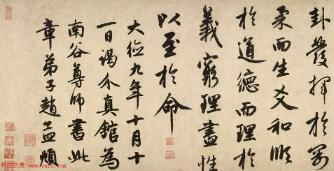 卦發揮於剛
柔而生爻和順
於道德而理於
義窮理盡性
以至於命
大德九年十月十
一日謁真館為
南谷尊師書此
章弟子趙孟頫